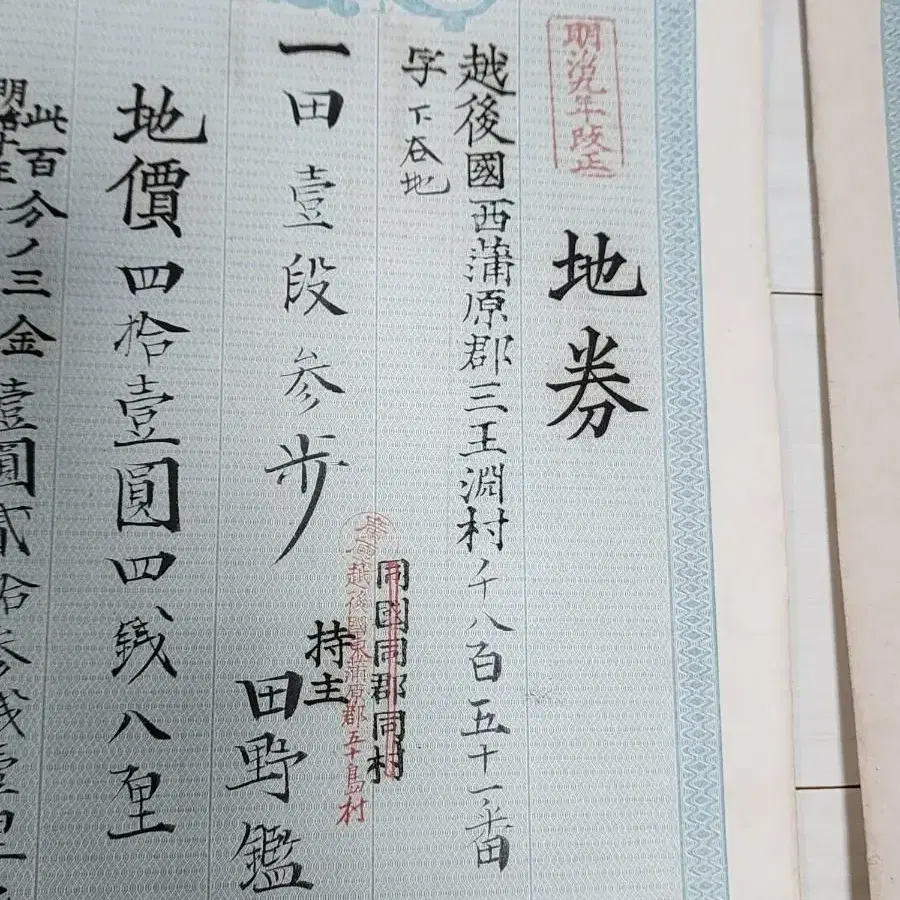 明治九年改正
地券
越後國西蒲原郡三王淵村千八百五十一番
字下谷地
一田壹段参歩
同國同郡同村
越後國東蒲原郡五十島村
持主 田野鑑
地價四拾壹圓四銭八厘
此百分ノ三金壹圓貳拾参銭壹厘
明治十